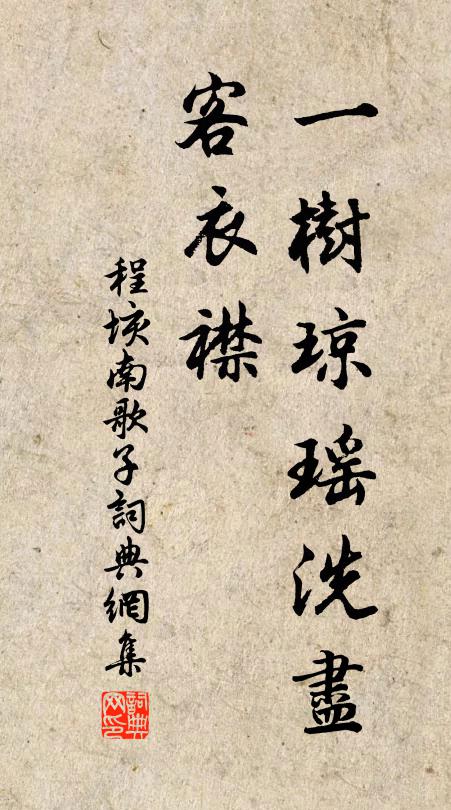 一樹琼瑶洗盡
客衣襟
程垓南歌子詞典網集
詞典
网印